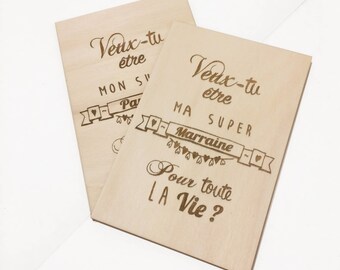 Veux-tu
être
MON SUPER
Pa
Veux-tu
être
MA SUPER
Marraine
Pour toute
LA Vie ?